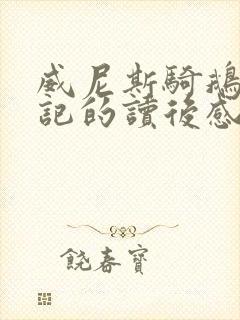 威尼斯騎鵝
記的讀後感
饒春寶